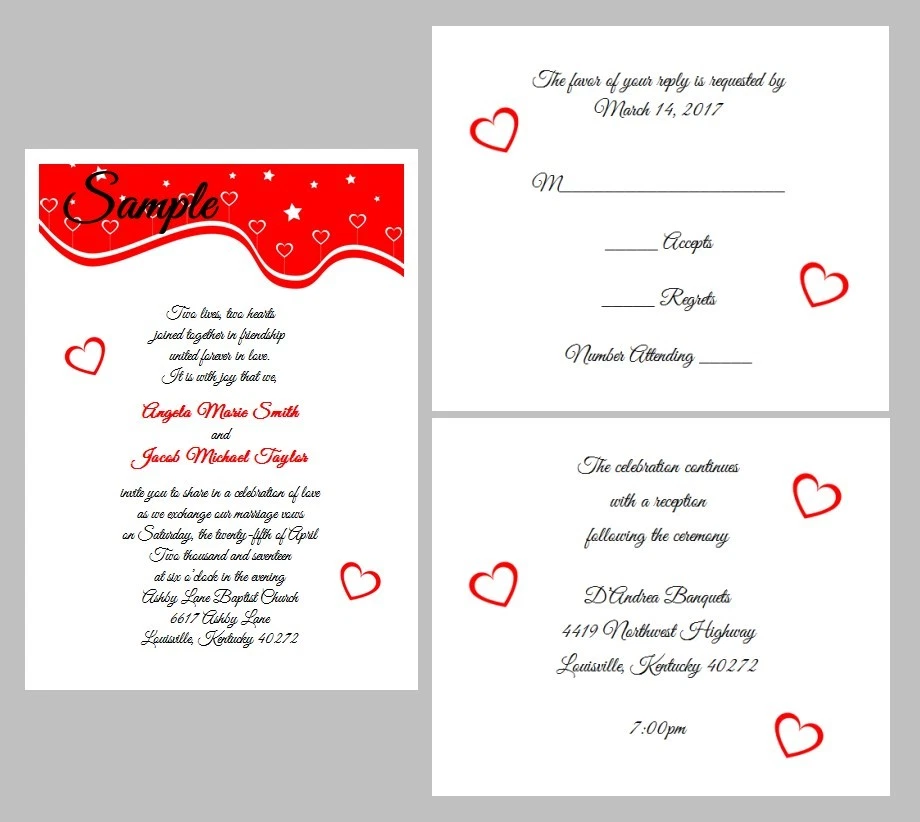 Sample
Two lives, two hearts
joined together in friendship
united forever in love.
It is with joy that we,
Angela Marie Smith
and
Jacob Michael Taylor
invite you to share in a celebration of love
as we exchange our marriage vows
on Saturday, the twenty-fifth of April
Two thousand and seventeen
at six o'clock in the evening
Ashby Lane Baptist Church
6617 Ashby Lane
Louisville, Kentucky 40272
The favor of your reply is requested by
March 14, 2017
M______________________
_____ Accepts
_____ Regrets
Number Attending _____
The celebration continues
with a reception
following the ceremony
D'Andrea Banquets
4419 Northwest Highway
Louisville, Kentucky 40272
7:00pm